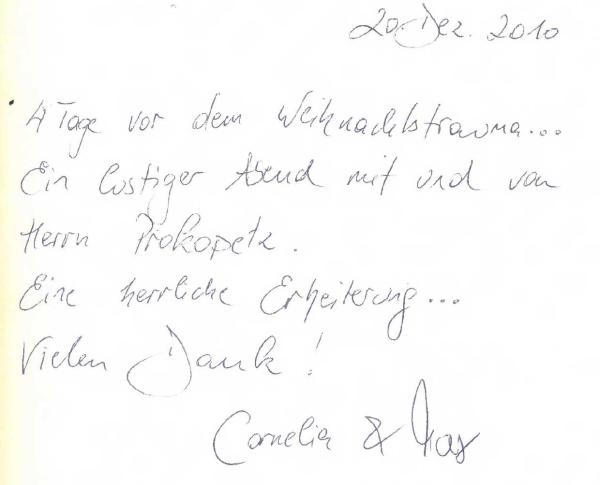 20. Dez. 2010
4 Tage vor dem Weihnachtstrauma...
Ein lustiger Abend mit und von
Herrn Prokopetz.
Eine herrliche Erheiterung...
Vielen Dank!
Cornelia &